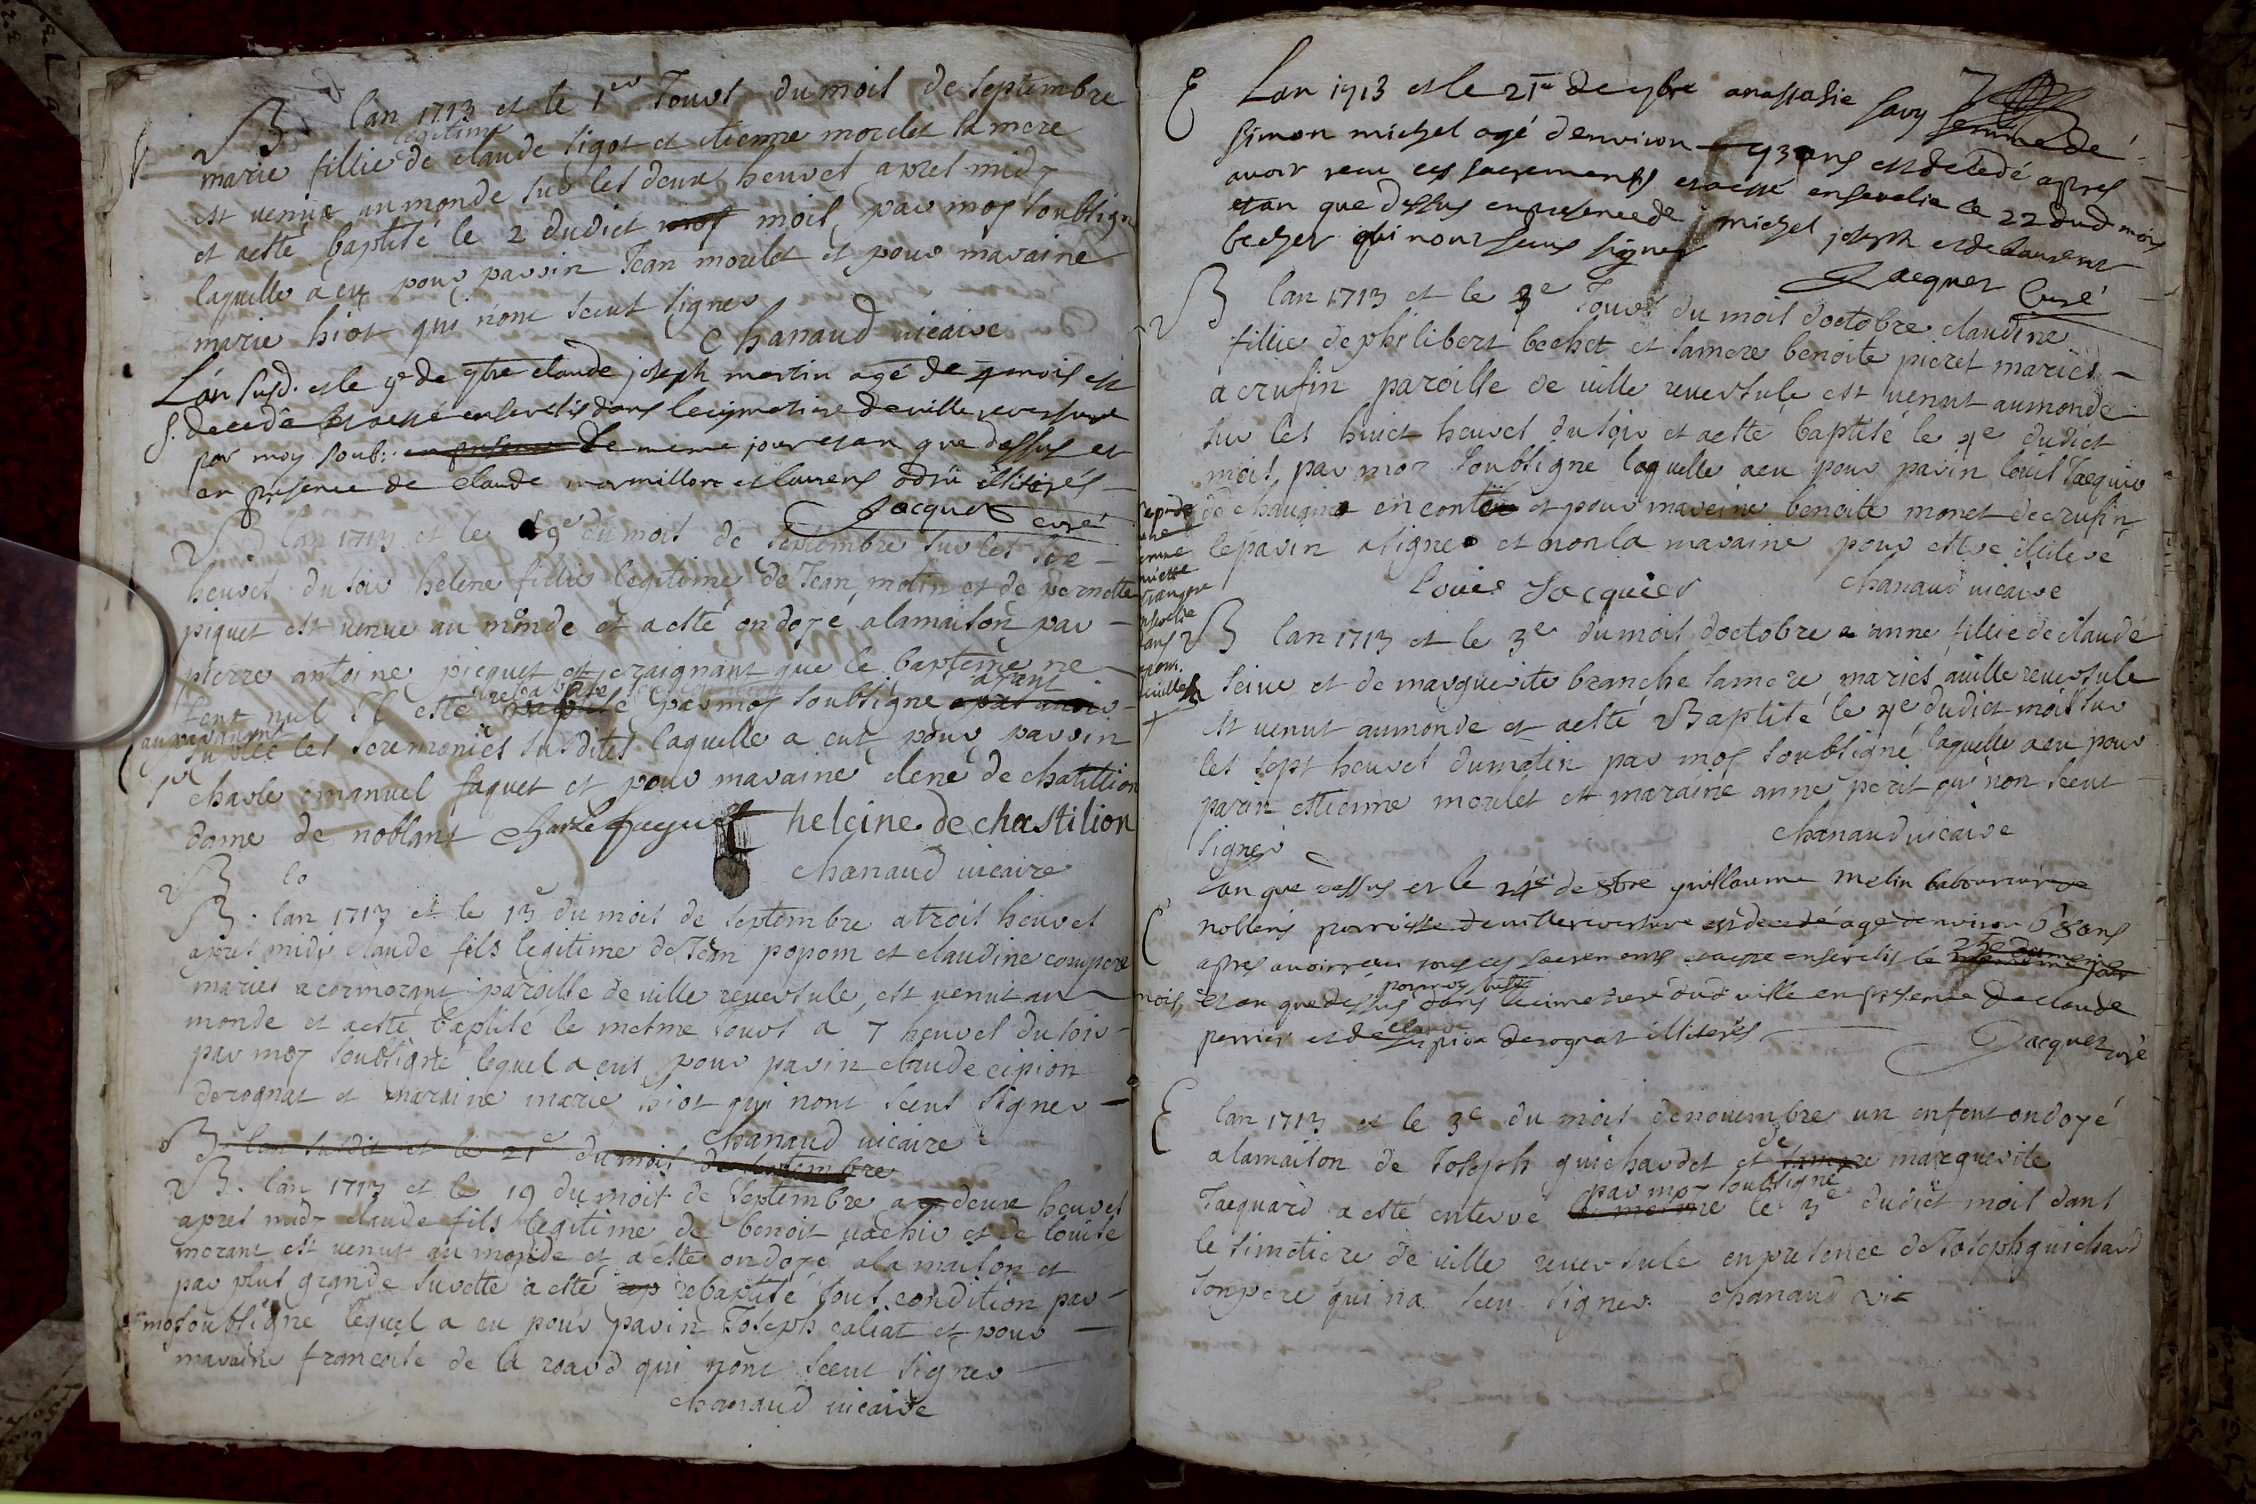 B lan 1713 et le 1er Jours du mois de septembre
marie fillie legitime de claude sigot et etienne morelet sa mere
est venue au monde sur les deux heures apres midy
et aesté baptisé le 2 dudict mois par moy soubsigné
laquelle a eu pour parrin Jean morelet et pour maraine
marie hiot qui nont sceut signer
Chanaud vicaire
Lan susd. et le 9e de 7bre claude joseph martin agé de 4 mois est
S. decedé et aesté ensevelis dans le cymetiere de ville reversure
par moy soub: en presence de le meme jour et an que dessus et
en presence de claude marmillon et laurens odru illiterés
Jacquet curé
B lan 1713 et le 9e du mois de septembre sur les six
heures du soir helene fillie legitime de Jean matin et de pernette
piquet est venue au monde et a esté ondoyé a la maison par
pierre antoine picquet et craignant que le bapteme ne
fent nul Il esté par moy soubsigné ayant
auparavant
les seremonies susdites laquelle a eut pour parrin
charle emanuel faquet et pour maraine elene de chatillion
dame de noblant Charle faguet heleine de chastilion
chanaud vicaire
B la
B. lan 1713 et le 13 du mois de septembre a trois heures
apres midi claude fils legitime de Jean popom et claudine compere
maries a cormorant paroisse de ville reversule, est venut au
monde et aesté baptisé le mesme Jours a 7 heures du soir
par moy soubsigné lequel a eut pour parin claude cipion
derognat et maraine marie hiot qui nont sceut signer
chanaud vicaire
B lan susdit et le 21e du mois de septembre
B. lan 1713 et le 19 du mois de septembre a deux heures
apres midy claude fils legitime de benoit vachir et de louise
morant est venut au monde et a esté ondoyé a la maison et
par plus grande surette a esté rebaptisé sous condition par
moy soubsigné lequel a eu pour parin Joseph caliat et pour
maraine francoise de la roard qui nont sceut signer
chanaud vicaire
7
E Lan 1713 et le 21e de 7bre anastasie savy femme de
simon michel agé denviron 43 ans est decedé apres
avoir receu ces sacrements et aesté ensevelie le 22 dud mois
et an que dessus en presence de michel joseph et de laurent
becher qui nont sceus signer
Jacquet Curé
B lan 1713 et le 3e Jours du mois doctobre claudine
fillie de philibert bechet et sa mere benoite pieret maries
a crufin paroisse de ville reversule est venut au monde
sur les huict heures du soir et aesté baptisé le 4e dudict
mois par moy soubsigné laquelle a eu pour parin louis Jaequier
de chavaint en contée et pour maraine benoite monet de crufin
le parin a signé et non la maraine pour estre illiteré
Louis Jacquier chanaud vicaire
B lan 1713 et le 3e du mois doctobre a anne fillie de claude
seive et de marguerite branche sa mere maries a ville reversule
est venut au monde et aesté Baptisé le 4e dudict mois sur
les sept heures du matin par moy soubsigné laquelle a eu pour
parin estienne morelet et maraine anne perit qui non sceut
signer
chanaud vicaire
an que dessus et le 24e de 8bre guillaume melin laboureur de
noblens parroisse de ville reversure est decedé agé denviron 68 ans
apres avoir receu tous ces sacrements et aesté ensevelis le 25e du meme
mois, et an que dessus par moy soubs dans le cimetiere dud ville en presence de claude
perrier et de claude cipion derognat illiterés
Jacquet curé
E lan 1713 et le 3e du mois de novembre un enfent ondoyé
a la maison de Joseph guichardet et de sa mere marguerite
Jaequard a esté enterré par moy soubsigné le 3e dudict mois dans
le simetiere de ville reversule en presence de Joseph guichard
son pere qui na sceu signer. chanaud vic